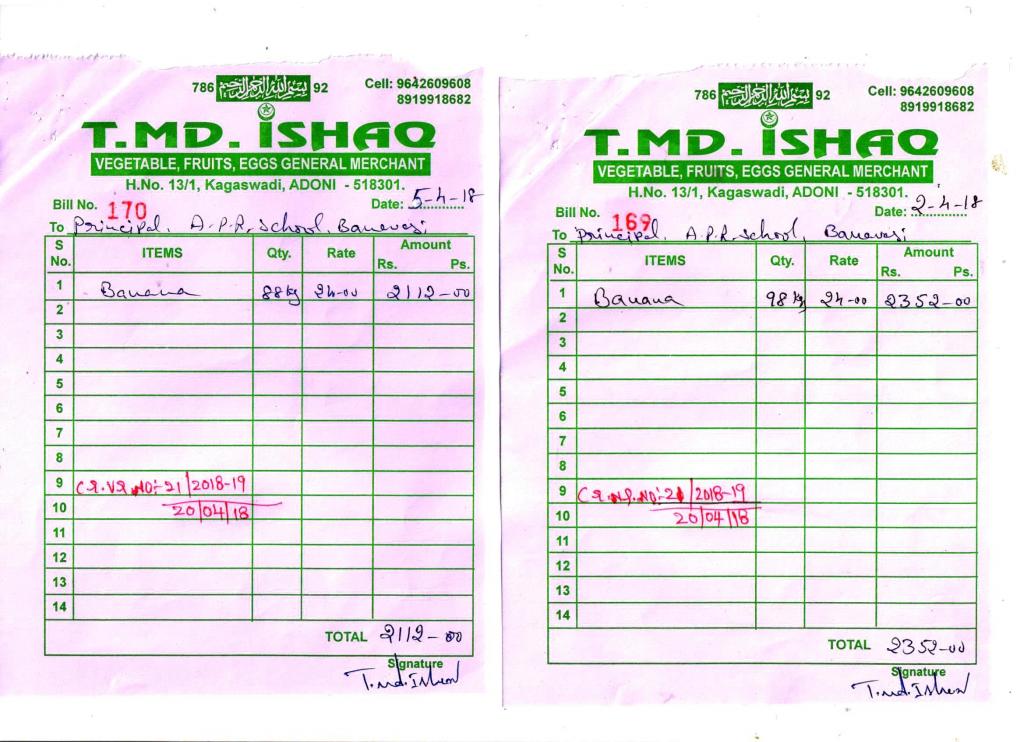 786 بسم الله الرحمن الرحيم 92
Cell: 9642609608
8919918682
T.MD. ISHAQ
VEGETABLE, FRUITS, EGGS GENERAL MERCHANT
H.No. 13/1, Kagaswadi, ADONI - 518301.
Bill No. 170 Date: 5-4-18
To Principal, A.P.R. School, Banavasi
S No. ITEMS Qty. Rate Amount Rs. Ps.
1 Banana 88 kg 24-00 2112-00
2
3
4
5
6
7
8
9 C.R.VR.NO:-21/2018-19
10 20/04/18
11
12
13
14
TOTAL 2112-00
Signature
T.md.Ishaq
786 بسم الله الرحمن الرحيم 92
Cell: 9642609608
8919918682
T.MD. ISHAQ
VEGETABLE, FRUITS, EGGS GENERAL MERCHANT
H.No. 13/1, Kagaswadi, ADONI - 518301.
Bill No. 169 Date: 2-4-18
To Principal, A.P.R. School, Banavasi
S No. ITEMS Qty. Rate Amount Rs. Ps.
1 Banana 98 kg 24-00 2352-00
2
3
4
5
6
7
8
9 NO:-21/2018-19
10 20/04/18
11
12
13
14
TOTAL 2352-00
Signature
T.md.Ishaq